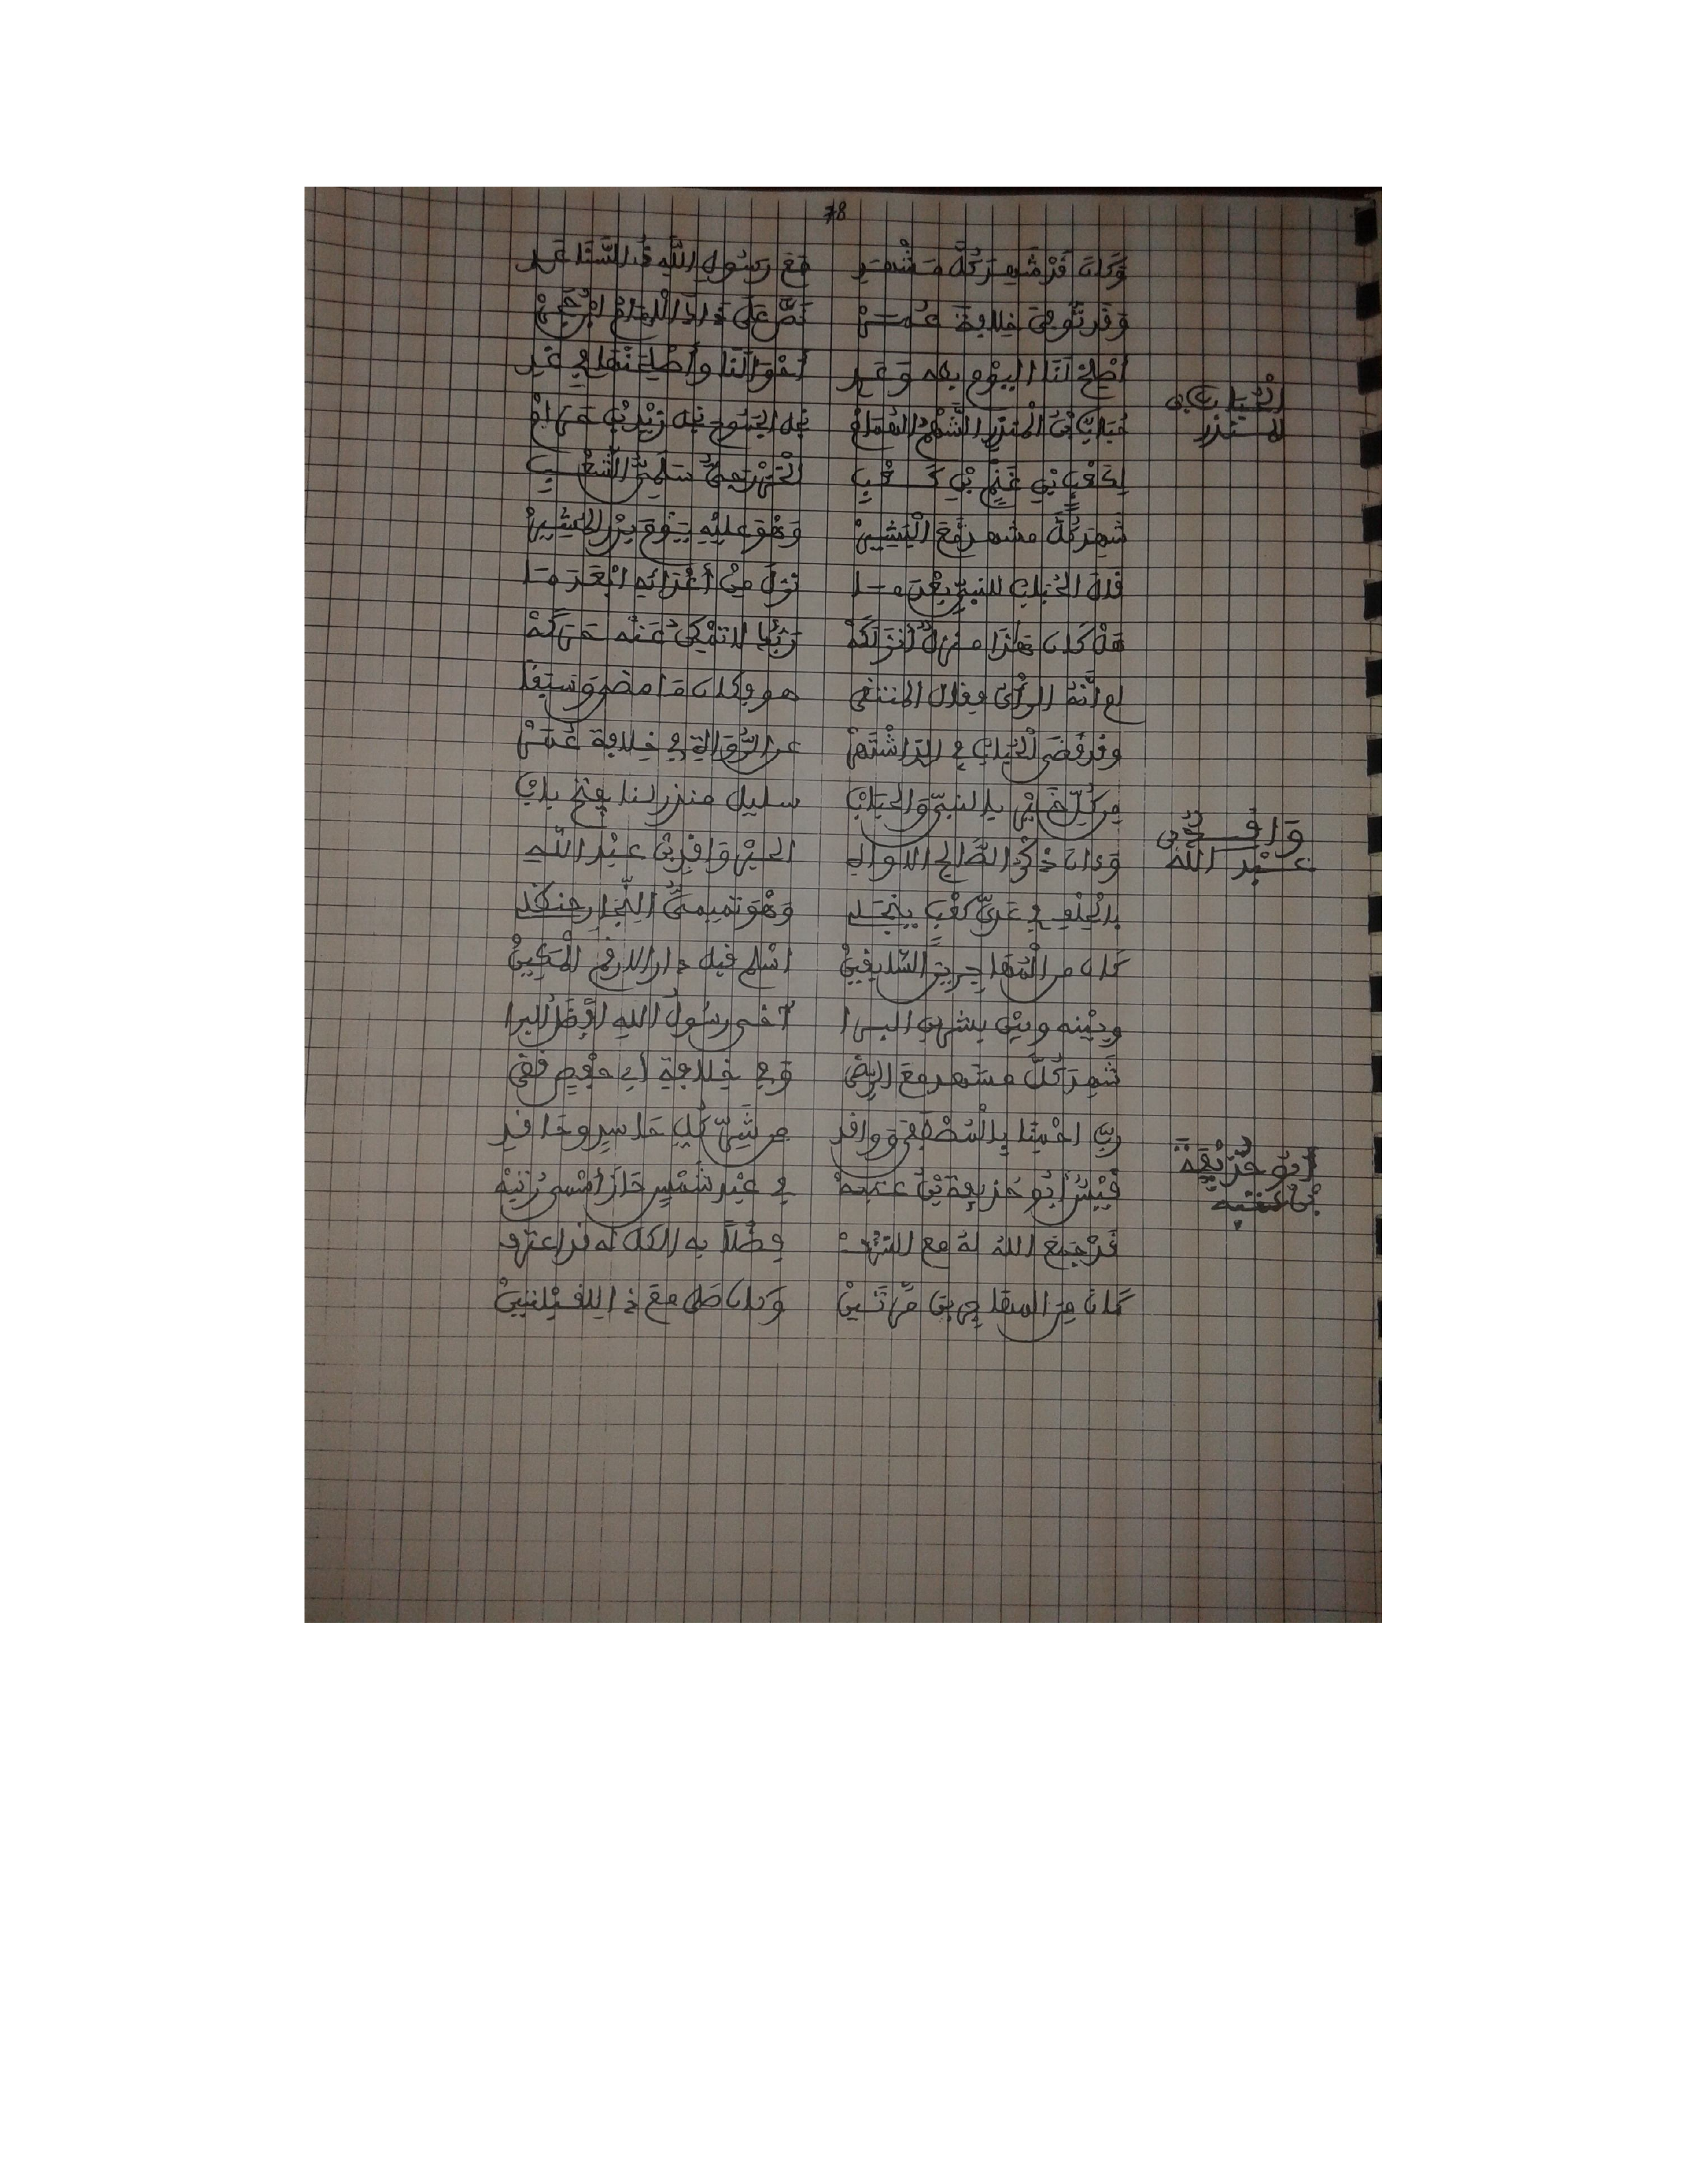 78
وَكَانَ قَدْ شَهِدَ كُلَّ مَشْهَدِ مَعَ رَسُولِ اللَّهِ ذُ السَّنَا
وَقَدْ تُوُفِّيَ خِلَافَةَ عُمَرْ نَصَّ عَلَى ذَاكَ الْإِمَامُ ابْنُ حَجَرْ
أَصْلِحْ لَنَا الْيَوْمَ بِهِ وَغَدِ أَحْوَالَنَا وَأَصْلِحَنْهَا فِي غَدِ
الْحُبَابُ بن المنذر
حُبَابٌ بْنُ الْمُنْذِرِ الشَّهْمُ الْهُمَامْ نَجْلُ الْجَمُوحِ نَجْلِ زَيْدِ بْنِ حَرَامْ
لِكَعْبٍ بْنِ غَنْمٍ بْنِ كَعْبِ الْخَزْرَجِيُّ سَلَمِيُّ الشَّعْبِ
شَهِدَ كُلَّ مشهد مَعَ الْبَشِيرْ وَهْوَ عَلَيْهِ
قَالَ الْحُبَابُ للنبيِّ بَعْدَ مَا نَزَلَ مِنْ أَعْدَائِهِ
هَلْ كَانَ هَذَا منزلٌ أَنْزَلَكَهْ رَبُّكَ لَا تُمْكِنُ عَنْهُ حَرَكَهْ
أم أَنَّهُ الرأْيُ فقال المنتقى هو وكان مَا مضى وَسَبَقَا
وقد قَضَى الْحُبَابُ فِي الذِ اشْتَهَرْ عن الرُّوَاةِ فِي خِلَافَةِ عُمَرْ
مِن كُلِّ خَيْرٍ بالنبيّ وَالحبَابْ سليل منذر لنا يفتح بابْ
وَاقِدُ بْنُ عَبْدِ الله
وَءانَ ذِكْرُ الصَّالِحِ الْأَوَّاهِ الحَبْرِ وَاقِدِ بْنِ عَبْدِ اللهِ
بالْحِلْفِ فِي عَدِيِّ كَعْبٍ وَهْوَ تَمِيمِيُّ النِّجَارِ حنظلي
كان من الْمُهَاجِرِينَ السَّابِقِينْ أسْلم قبل دار الارقم الْمَكِينْ
وبَيْنه وبين بشر بن البرا آخى رسُولُ اللهِ أَفْضَلُ البرا
شَهِدَ كُلَّ مشهد مَعَ الرضى وَفِي خِلَافَةِ أَبِي حَفْصٍ قضى
رَبِّ احْمِنَا بِالْمُصْطَفَى وَواقد مِن شَرِّ كُلِّ حَاسِدٍ وحَاقد
أبُو حُذَيْفَةَ بْنُ عُتْبَة
قَيْسٌ أَبُو حُذَيفة بْنُ عتبهْ فِي عَبْدِ شَمْسٍ حَازَ أَسْمَى رُتْبَهْ
قَدْ جَمَعَ اللهُ لَهُ مع الشرفْ فَضْلاً بِه الكل له قد اعترف
كَانَ مِنَ المهاجرِينَ مَرَّتَيْنْ وَكان صَلَّى مَعَ ذَا لِلْقِبْلَتَيْنْ